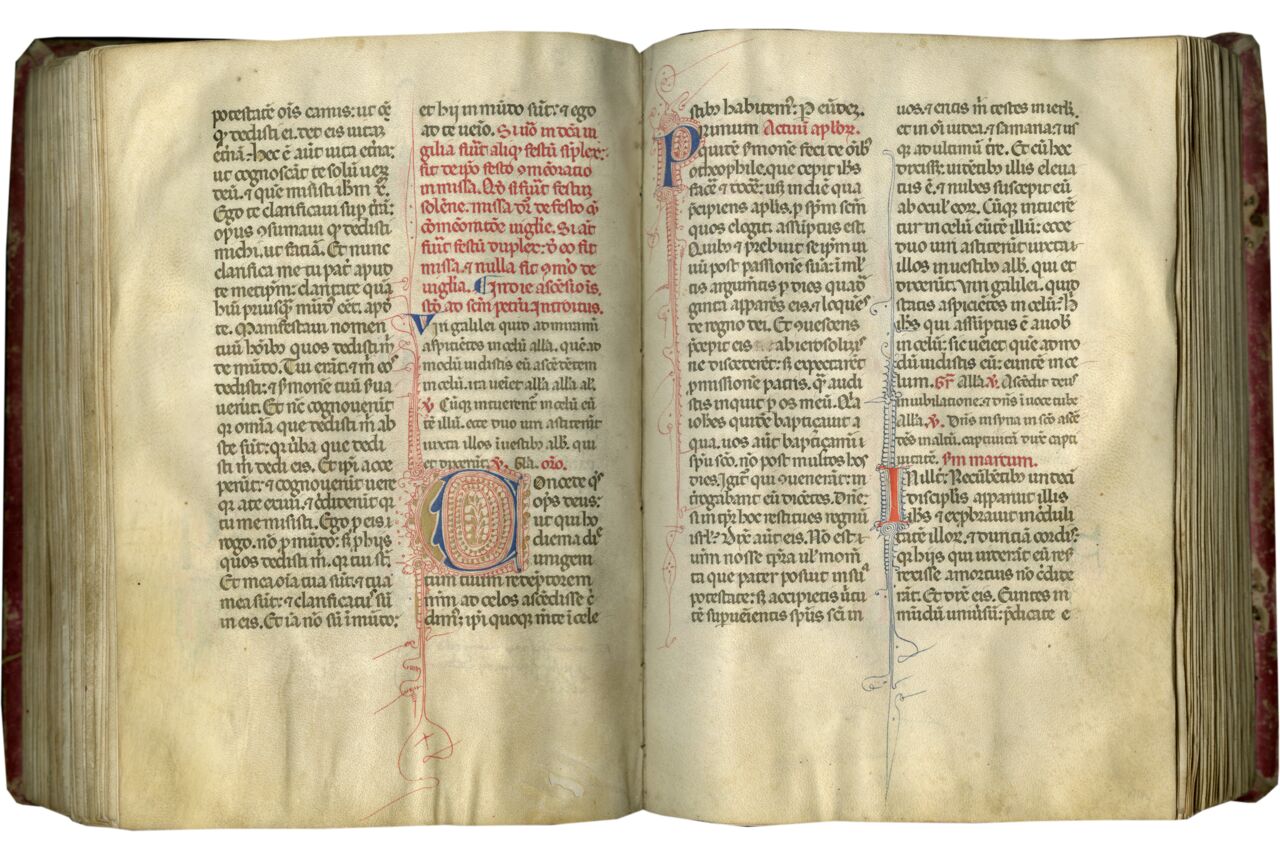 potestatē oīs carnis: ut oē
qd̄ dedisti ei. det eis uitaȝ
et̄nā. hec ē aūt uita et̄na:
ut cognoscāt te solū uerū
deū. ⁊ quē misisti ihm̄ x̄.
Ego te clarificaui sup t̄rā:
opus ɔsumaui qd̄ dedisti
michi. ut faciā. Et nunc
clarifica me tu pat̄ apud
te metip̄m: claritate quā
hūi priusq̄ mūd' eēt. apd̄
te. Manifestaui nomen
tuū hōibȝ quos dedisti m̄
de mūdo. Tui erāt: ⁊ m̄ eos
dedisti: ⁊ s̄monē tuū s̄ua
uerūt. Et nc̄ cognouerūt
qr omīa que dedisti m̄ ab
ste sūt: qr ūba que dedi
sti m̄ dedi eis. Et ip̄i acce
perūt: ⁊ cognouerūt uere
qr a te exiui. ⁊ c̄diderūt qr
tu me misisti. Ego p eis
rogo. nō p mūdo: s; p hijs
quos dedisti m̄. qr tui sūt.
Et mea oīa tua sūt: ⁊ tua
mea sūt: ⁊ clarificat' sū
in eis. Et iā nō sū ī mūdo:
et hij in mūdo sūt: ⁊ ego
ad te uēio. Si uō in dc̄a ui
gilia fūit aliqd̄ festū sīplex:
fit de ip̄o festo ɔmēoratio
in missa. Qd̄ si fūit festū
solēne. missa dr̄ de festo cū
cōmēoratōe uigilie. Si aūt
fūit festū duplex: d' eo fit
missa. ⁊ nulla fit ɔmēo de
uigilia. In die ascēsiōis.
stō ad scm̄ petrū. Introitus.
Viri galilei quid admiramī
aspiciētes in celū all̄a. quē ad
modū uidistis eū ascēdētem
in celū. ita ueiet all̄a all̄a al̄.
℣ Cūqȝ intuerent̄ in celū eū
tē illū. ecce duo uiri astiterūt
iuxta illos ī uestibȝ alb̄. qui
et dixerūt. ℣. Gl̄a. orō.
Concede qs̄
ops̄ deus:
ut qui ho
dierna die
unigeni
tum tuum redēptorem
nr̄m ad celos ascēdisse c̄
dim': ip̄i quoqȝ m̄te ī cele
stibȝ habitem'. P eūdeȝ.
Primum Actuū aplōrȝ.
quidē s̄monē feci de oībȝ
o theophile. que cepit ihs̄
facē ⁊ docē: usqȝ in diē qua
p̄cipiens apl̄is. p sp̄m scm̄
quos elegit. assūptus est.
Quibȝ ⁊ p̄buit se ip̄m ui
uū post passionē suā: ī ml̄
tis argumtis p dies quad̄
ginta apparēs eis. ⁊ loquēs
de regno dei. Et ɔuescens
p̄cepit eis ab ierosolimis
ne discederēt: s; expectarēt
pmissionē patris. qȝ audi
stis inquit p os meū. Quia
iohēs quidē baptiçauit a
qua. uos aūt baptiçamī ī
sp̄u scō. nō post multos hos
dies. Igit̄ qui ɔuenerāt: in
t̄rogabant eū dicētes. Dn̄e:
si in tp̄r hoc restitues regnū
isrl̄? Dix̄ aūt eis. Nō est
ur̄m nosse tp̄ra ul̄ mom̄
ta que pater posuit in sua
potestate: s; accipietis ūtu
tē supuēientis sp̄us sc̄i in
uos. ⁊ eritis m̄ testes in ierl̄.
et in oī iudea. ⁊ samaria: ⁊ us
qȝ ad ultimū t̄re. Et cū hec
dixisset: uidētibȝ illis eleua
tus ē. ⁊ nubes suscepit eū
ab ocul' eoȝ. Cūqȝ intuerē
tur in celū eūtē illū: ecce
duo uiri astiterūt iuxta
illos in uestibȝ alb̄. qui et
dixerūt. Viri galilei. quid
statis aspiciētes in celū? Hic
ihs̄ qui assūptus ē a uobȝ
in celū: sic ueiet quē ad mo
dū uidistis eū: eūntē in ce
lum. Gr̄. All̄a ℣. Ascēdit deus
in iubilatione. ⁊ dn̄s ī uoce tube
all̄a. ℣. Dn̄s in syna in scō ascē
dēs in altū. captiuā dux̄ capti
uitatē. Sm̄ marcum.
In illo t̄. Recūbētibȝ undeci
discipl̄is apparuit illis
ihs̄ ⁊ exprobrauit īc̄duli
tatē illorȝ. ⁊ duriciā cordis:
qr hijs qui uiderāt eū res
rexisse a mortuis nō c̄dide
rāt. Et dix̄ eis. Euntes in
mūdū uniūsū: p̄dicate e